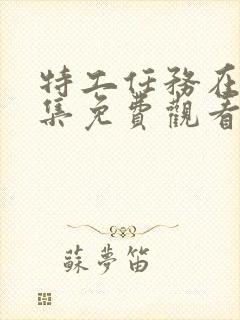 特工任務在
集免費觀看
蘇夢笛